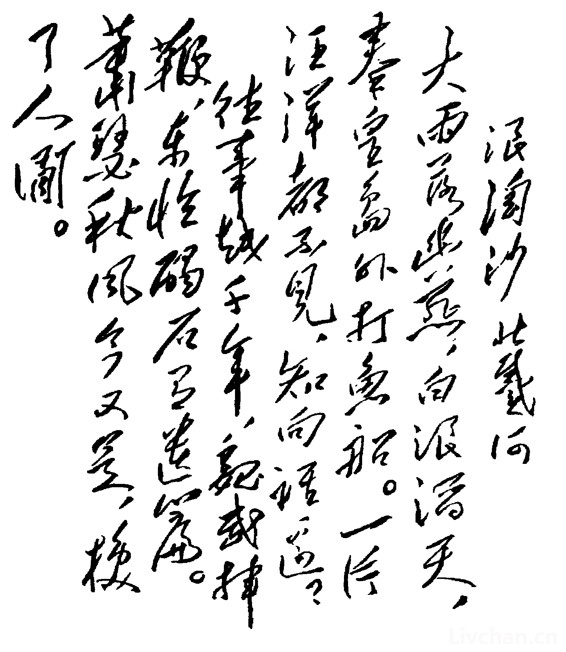 浪淘沙 北戴河
大雨落幽燕,白浪滔天,
秦皇岛外打鱼船。一片
汪洋都不见,知向谁边?
往事越千年,魏武挥
鞭,东临碣石有遗篇。
萧瑟秋风今又是,换
了人间。
Livchan.cn